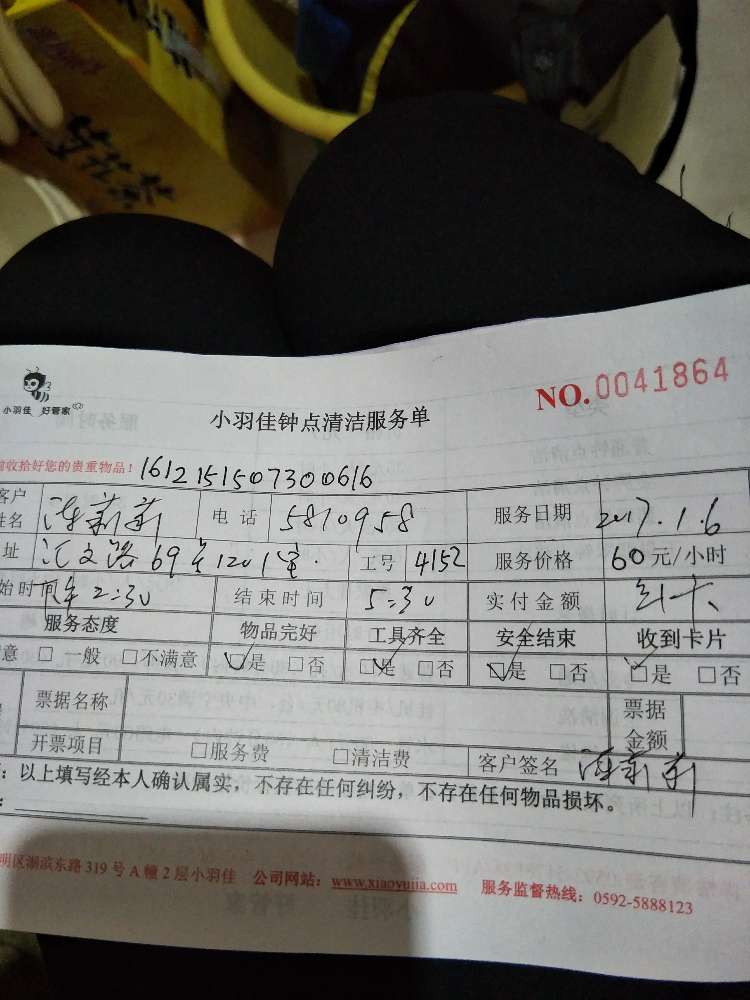 小羽佳 好管家
小羽佳钟点清洁服务单
NO.0041864
收拾好您的贵重物品! 1612151507300616
客户姓名 电话 5810958 服务日期 2017.1.6
址 汇文路69号1201室. 工号 4152 服务价格 60元/小时
始时间 2:30 结束时间 5:30 实付金额
服务态度 物品完好 工具齐全 安全结束 收到卡片
意 □一般 □不满意 □是 □否 □是 □否 □是 □否 □是 □否
票据名称 票据金额
开票项目 □服务费 □清洁费 客户签名
:以上填写经本人确认属实,不存在任何纠纷,不存在任何物品损坏。
明区湖滨东路319号A幢2层小羽佳 公司网站:www.xiaoyujia.com 服务监督热线:0592-5888123